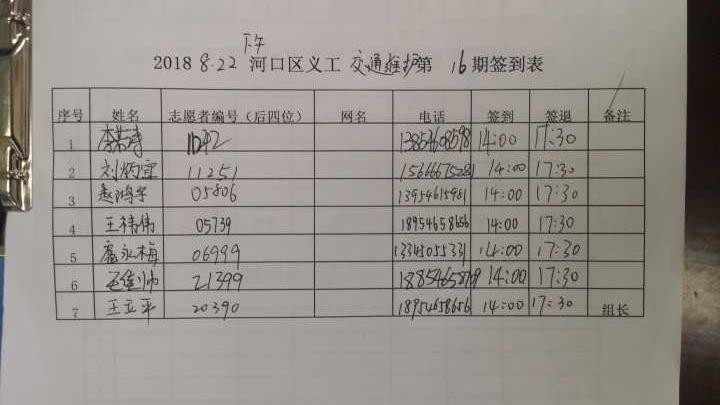 下午
2018 8.22 河口区义工 交通维护第 16 期签到表
序号 姓名 志愿者编号（后四位） 网名 电话 签到 签退 备注
1 1142 13854608598 14:00 17:30
2 刘炳宜 11251 14:00 17:30
3 赵鸿宇 05806 13954615981 14:00 17:30
4 王祎伟 05739 18954658656 14:00 17:30
5 永梅 06999 13345055331 14:00 17:30
6 21399 14:00 17:30
7 王立平 20390 18954658656 14:00 17:30 组长